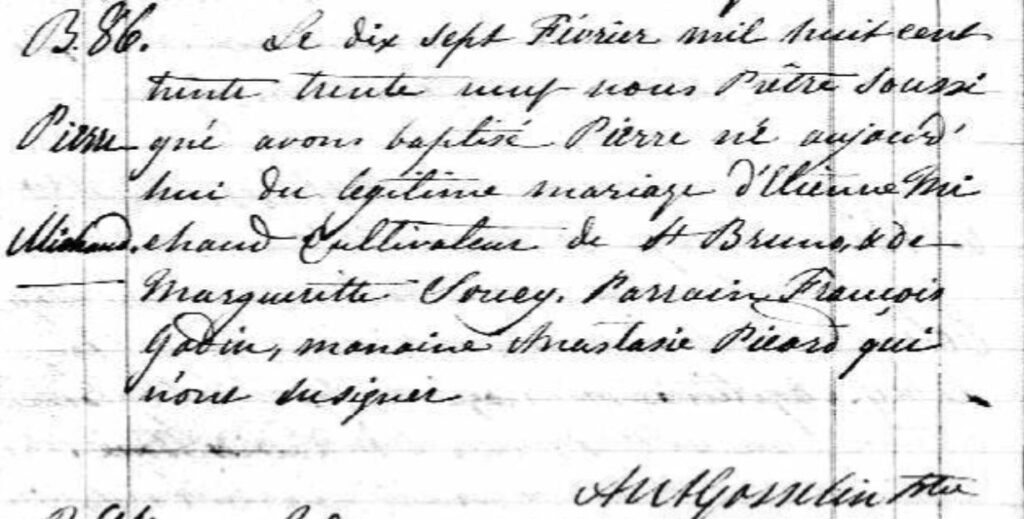 B. 86. Le dix sept Février mil huit cent
trente trente neuf nous Prêtre soussi
Pierre gné avons baptisé Pierre né aujourd'
hui du legitime mariage d'Etienne Mi
Michaud. chaud Cultivateur de St Bruno, & de
Margueritte Soucy. Parrain François
Godin, marraine Anastasie Picard qui
n'ont su signer
Gosselin Ptre